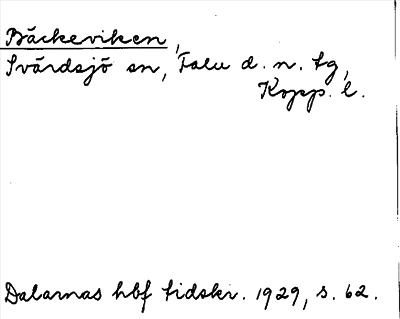 Bäckeviken,
Svärdsjö sn, Falu d. n. tg,
Kopp. l.
Dalarnas hbf tidskr. 1929, s. 62.